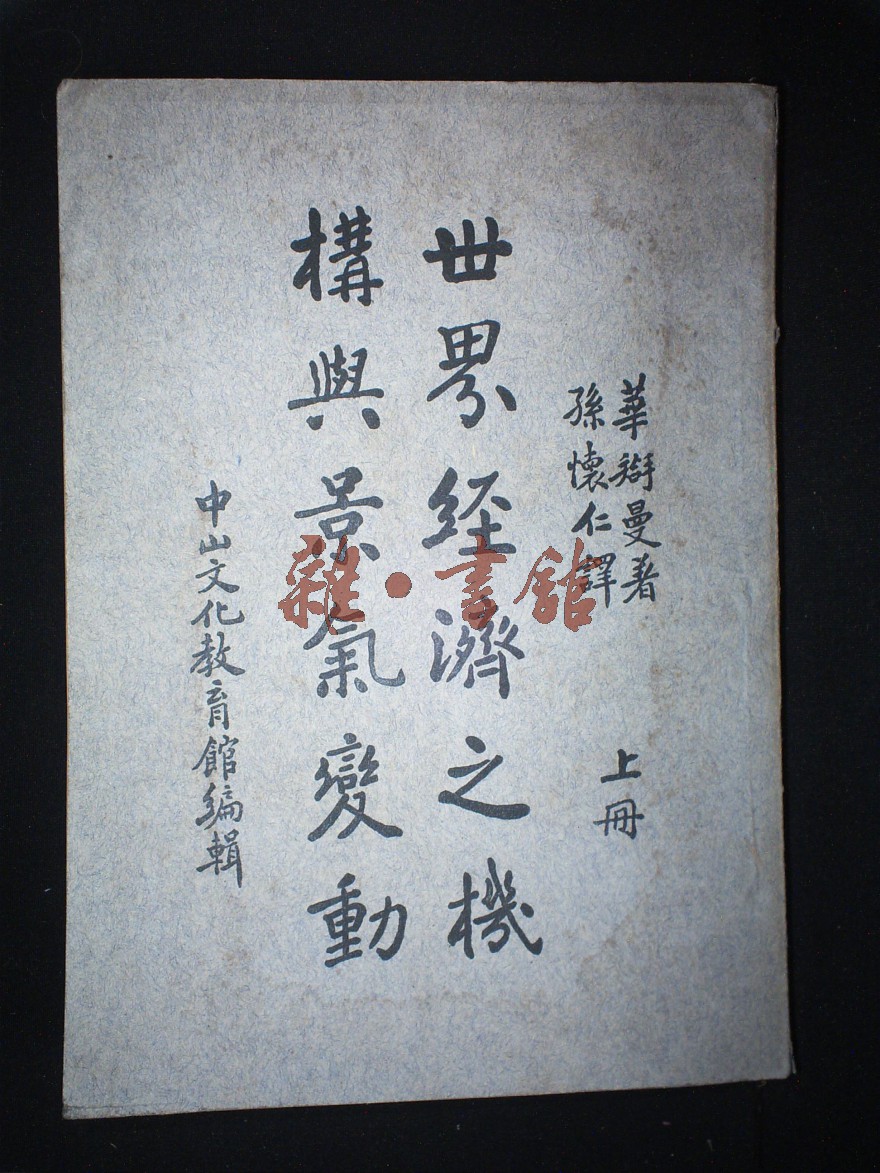 華辥曼著
孫懷仁譯
上冊
世界经濟之機
構與景氣變動
中山文化教育館編輯
雜·書館